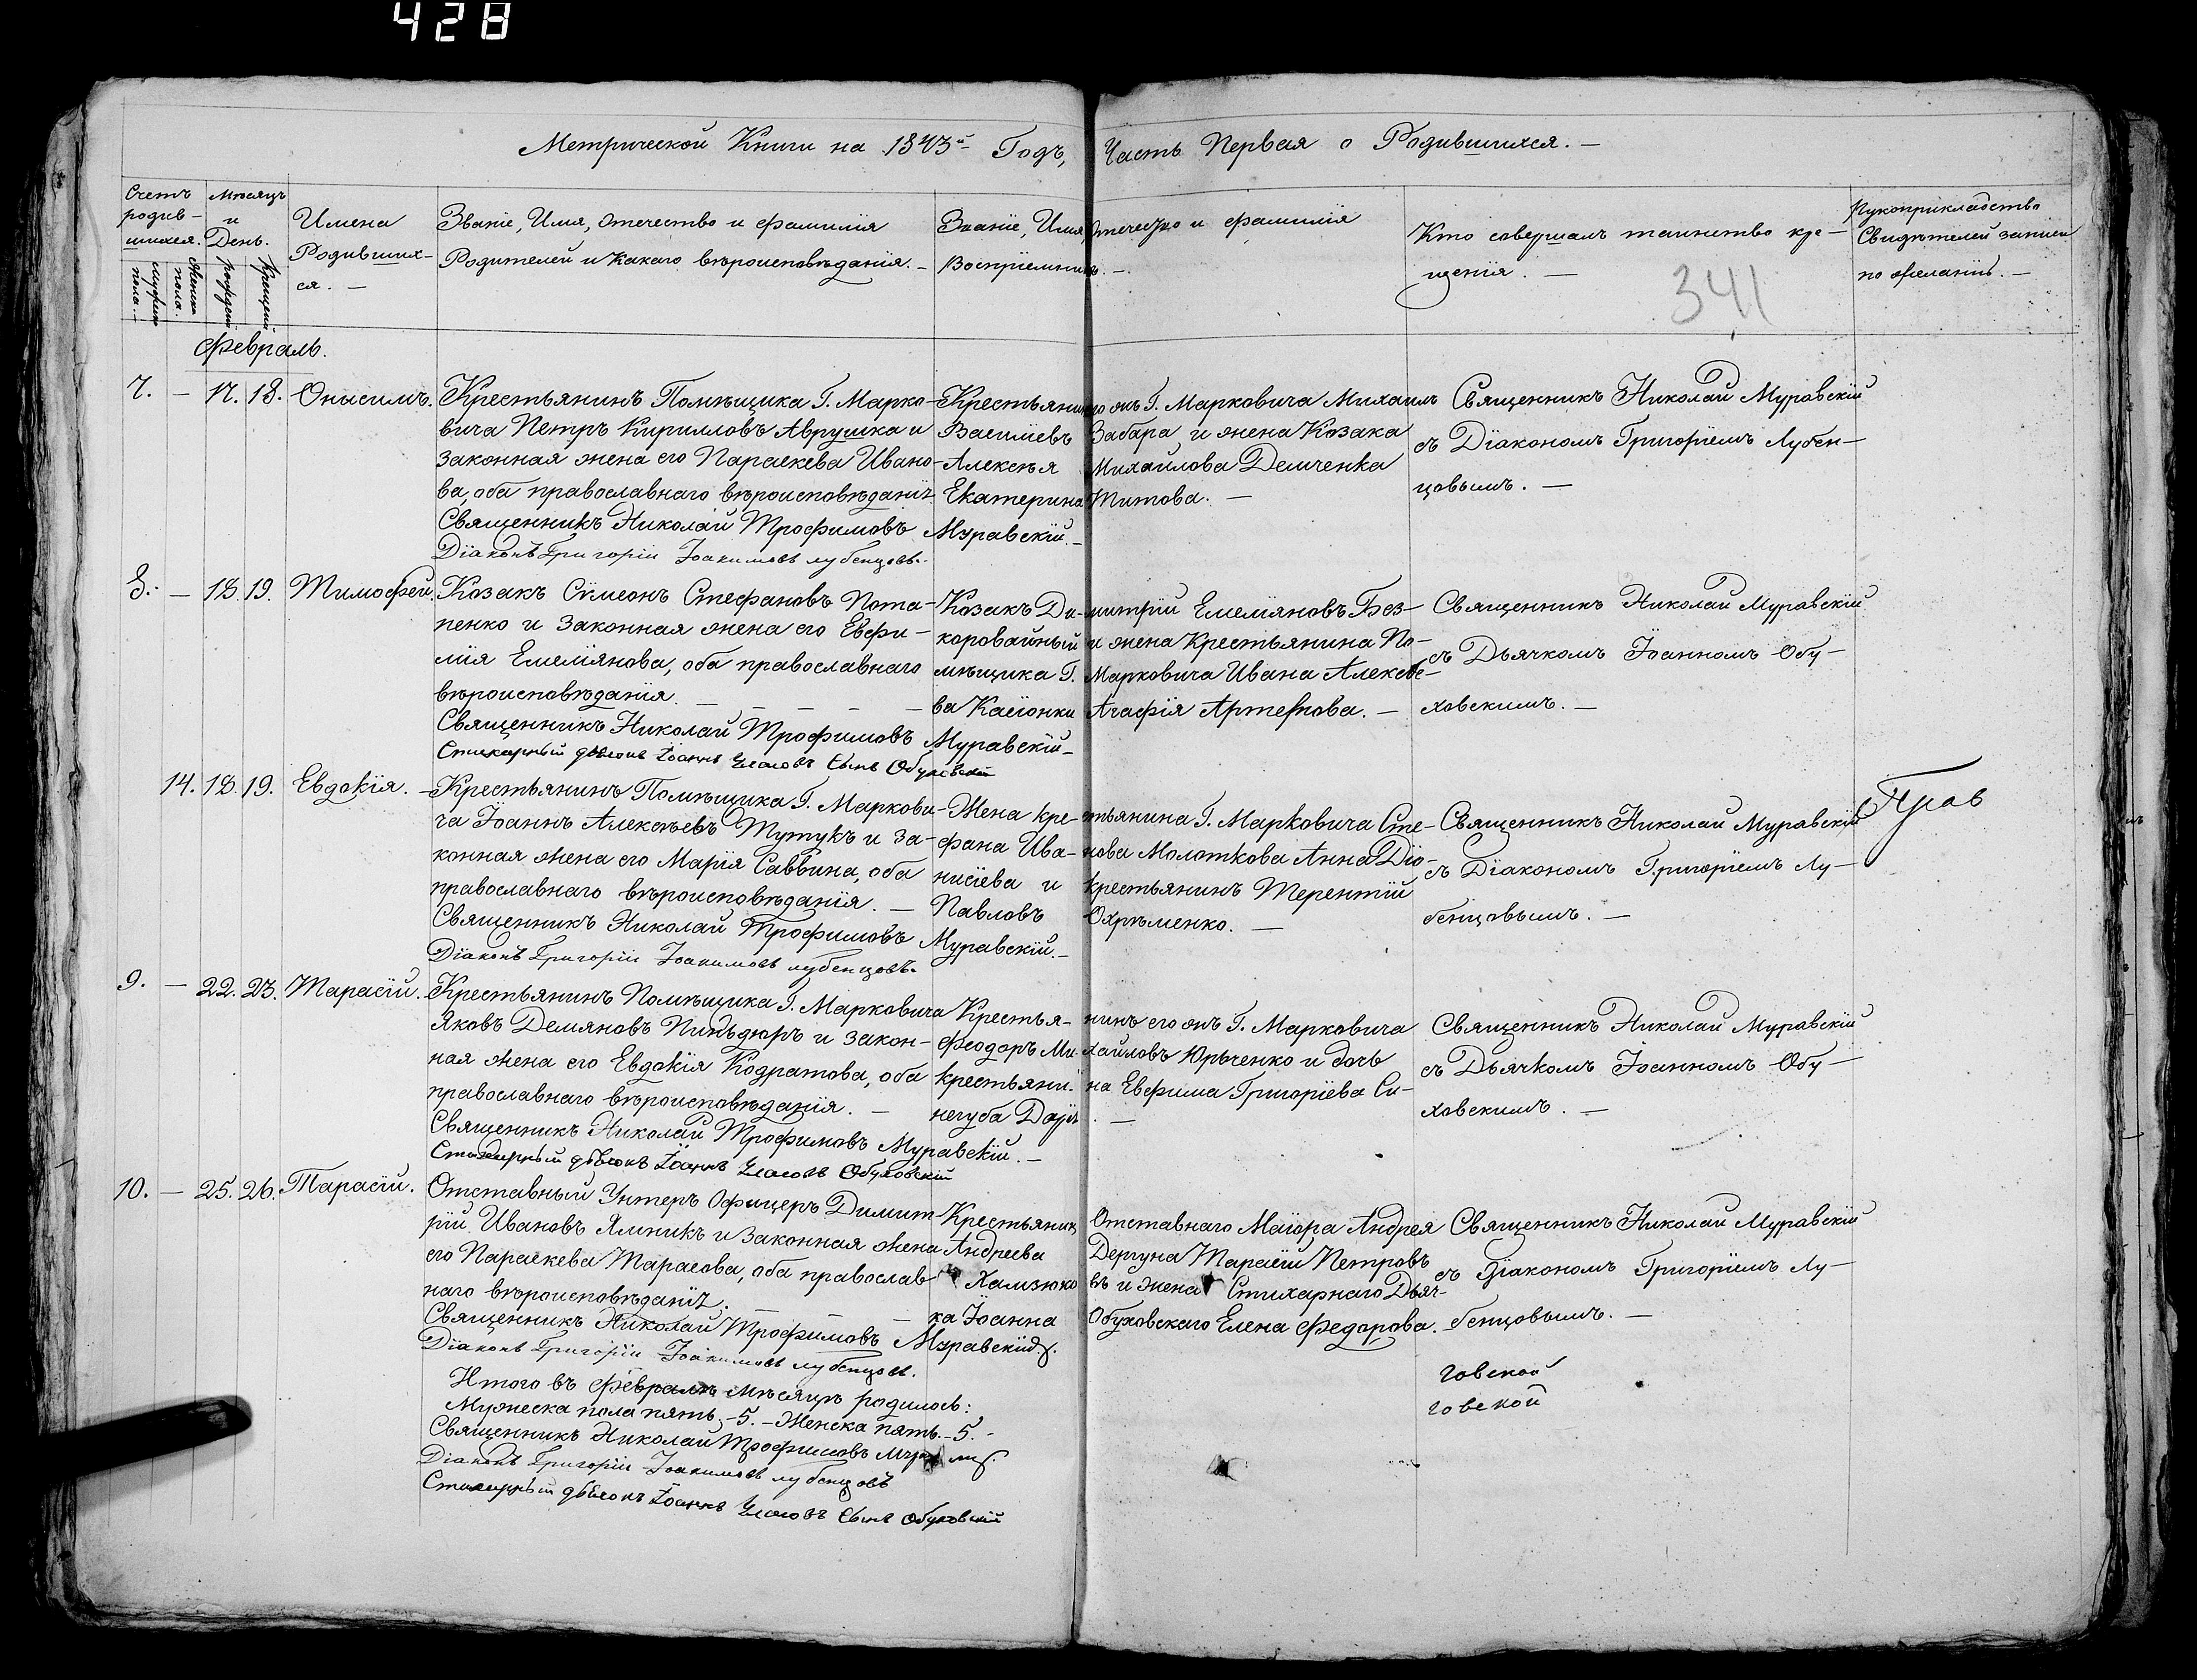 428
Метрической Книги на 1843й Годъ, Часть Первая о Родившихся. —
Счетъ родив-шихся.
Мужеска пола. —
Женска пола.
Мѣсяцъ и День.
рожден
Крещен
Имена Родивших-ся. —
Званіе, Имя, Отечество и Фамилія
Родителей и Какаго вѣроисповѣданія. —
Званіе, Имя, Отечество и Фамилія
Воспріемниковъ. —
Кто совершалъ таинство кре-
щенія. —
Рукоприкладство
Свидѣтелей записи
по желанію. —
341
Февраль.
7. — 17. 18. Онысимъ.
Крестьянинъ Помѣщика Г. Марко-
вича Петръ Кирилловъ Аврушка и
законная жена его Параскева Ивано-
ва, оба православнаго вѣроисповѣданія
Священникъ Николай Трофимовъ Муравскій. —
Діаконъ Григорій Іоакимовъ Лубенцовъ.
Крестьянинъ его жъ Г. Марковича Михаилъ
Василіевъ Забара и жена Козака
Алексѣя Михайлова Демченка
Екатерина Титова. —
Священникъ Николай Муравскій
съ Діакономъ Григоріемъ Лубен-
цовымъ. —
8. — 18. 19. Тимофей.
Козакъ Сѵмеонъ Стефановъ Пота-
пенко и Законная жена его Евфи-
мія Емеліянова, оба православнаго
вѣроисповѣданія. — — — — —
Священникъ Николай Трофимовъ Муравскій —
Стихарный дьячокъ Іоаннъ Власовъ Сынъ Обуховскій
Козакъ Ди-митрій Емеліяновъ Без-
коровайный и жена Крестьянина По-
мѣщика Г. Марковича Ивана Алексѣе-
ва Касіонки Агафія Артемова. —
Священникъ Николай Муравскій
съ Дьячкомъ Іоанномъ Обу-
ховскимъ. —
14. 18. 19. Евдокія. —
Крестьянинъ Помѣщика Г. Маркови-
ча Іоаннъ Алексѣевъ Тутукъ и За-
конная жена его Марія Саввина, оба
православнаго вѣроисповѣданія. —
Священникъ Николай Трофимовъ Муравскій. —
Діаконъ Григорій Іоакимовъ Лубенцовъ.
Жена кре-стьянина Г. Марковича Сте-
фана Ива-нова Молоткова Анна Діо-
нисіева и крестьянинъ Терентій
Павловъ Охрѣменко. —
Священникъ Николай Муравскій
съ Діакономъ Григоріемъ Лу-
бенцовымъ. —
9. — 22. 23. Тарасій.
Крестьянинъ Помѣщика Г. Марковича
Яковъ Демяновъ Пиндъдюръ и Закон-
ная жена его Евдокія Кодратова, оба
православнаго вѣроисповѣданія. —
Священникъ Николай Трофимовъ Муравскій. —
Стихарный дьячокъ Іоаннъ Власовъ Обуховскій
Крестья-нинъ его жъ Г. Марковича
Феодоръ Ми-хайловъ Юрьченко и дочь
крестьяни-на Евфима Григоріева Си-
негуба Дарія. —
Священникъ Николай Муравскій
съ Дьячкомъ Іоанномъ Обу-
ховскимъ. —
10. — 25. 26. Тарасій.
Отставный Унтеръ Офицеръ Димит-
рій Ивановъ Ямникъ и законная жена
его Параскева Тарасова, оба православ
наго вѣроисповѣданія. — — —
Священникъ Николай Трофимовъ Муравскій.
Діаконъ Григорій Іоакимовъ Лубенцовъ.
Крестьянинъ Отставнаго Маіора Андрея
Андреева Дергуна Тарасій Петровъ
Хамзюковъ и жена Стихарнаго Дьяч-
ка Іоанна Обуховскаго Елена Федорова.
Священникъ Николай Муравскій
съ Діакономъ Григоріемъ Лу-
бенцовымъ. —
Итого въ Февралѣ мѣсяцѣ родилось:
Мужеска пола пять. — 5. — Женска пять. — 5. —
Священникъ Николай Трофимовъ
Діаконъ Григорій Іоакимовъ Лубенцовъ
Стихарный дьячокъ Іоаннъ Власовъ Сынъ Обуховскій
говской
говской